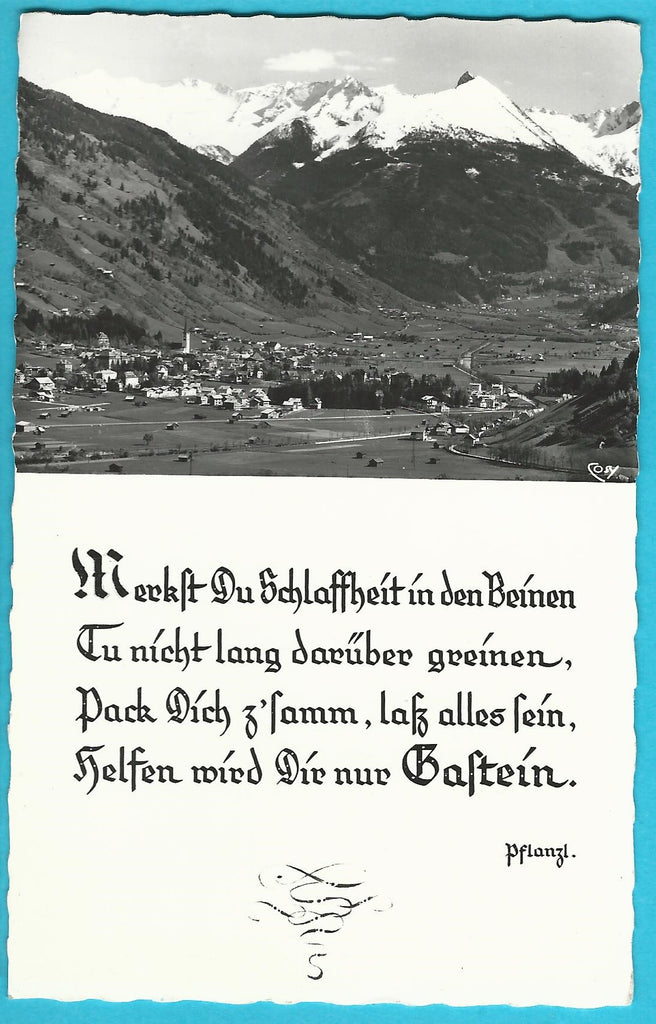 Cosy
Merkst Du Schlaffheit in den Beinen
Tu nicht lang darüber greinen,
Pack Dich z'samm, laß alles sein,
Helfen wird Dir nur Gastein.
Pflanzl.